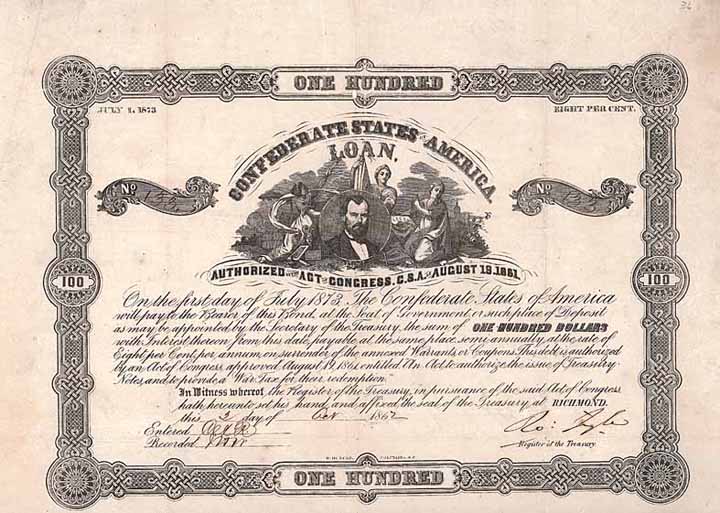 36
ONE HUNDRED
JULY 1, 1873
EIGHT PER CENT.
CONFEDERATE STATES OF AMERICA.
LOAN.
No 
No 
AUTHORIZED BY THE ACT OF CONGRESS, C.S.A. OF AUGUST 19, 1861.
100
100
On the first day of July 1873. The Confederate States of America
will pay to the Bearer of this Bond, at the Seat of Government, or such place of Deposit
as may be appointed by the Secretary of the Treasury, the sum of ONE HUNDRED DOLLARS
with Interest thereon from this date, payable at the same place, semi-annually, at the rate of
Eight per Cent, per annum, on surrender of the annexed Warrants or Coupons. This debt is authorized
by an Act of Congress approved August 19, 1861, entitled An Act to authorize the issue of Treasury
Notes, and to provide a War Tax for their redemption.
In Witness whereof, the Register of the Treasury, in pursuance of the said Act of Congress
hath hereunto set his hand, and affixed the seal of the Treasury, at RICHMOND.
this day of 1862
Entered
Recorded
Ro: Tyler
Register of the Treasury.
ONE HUNDRED